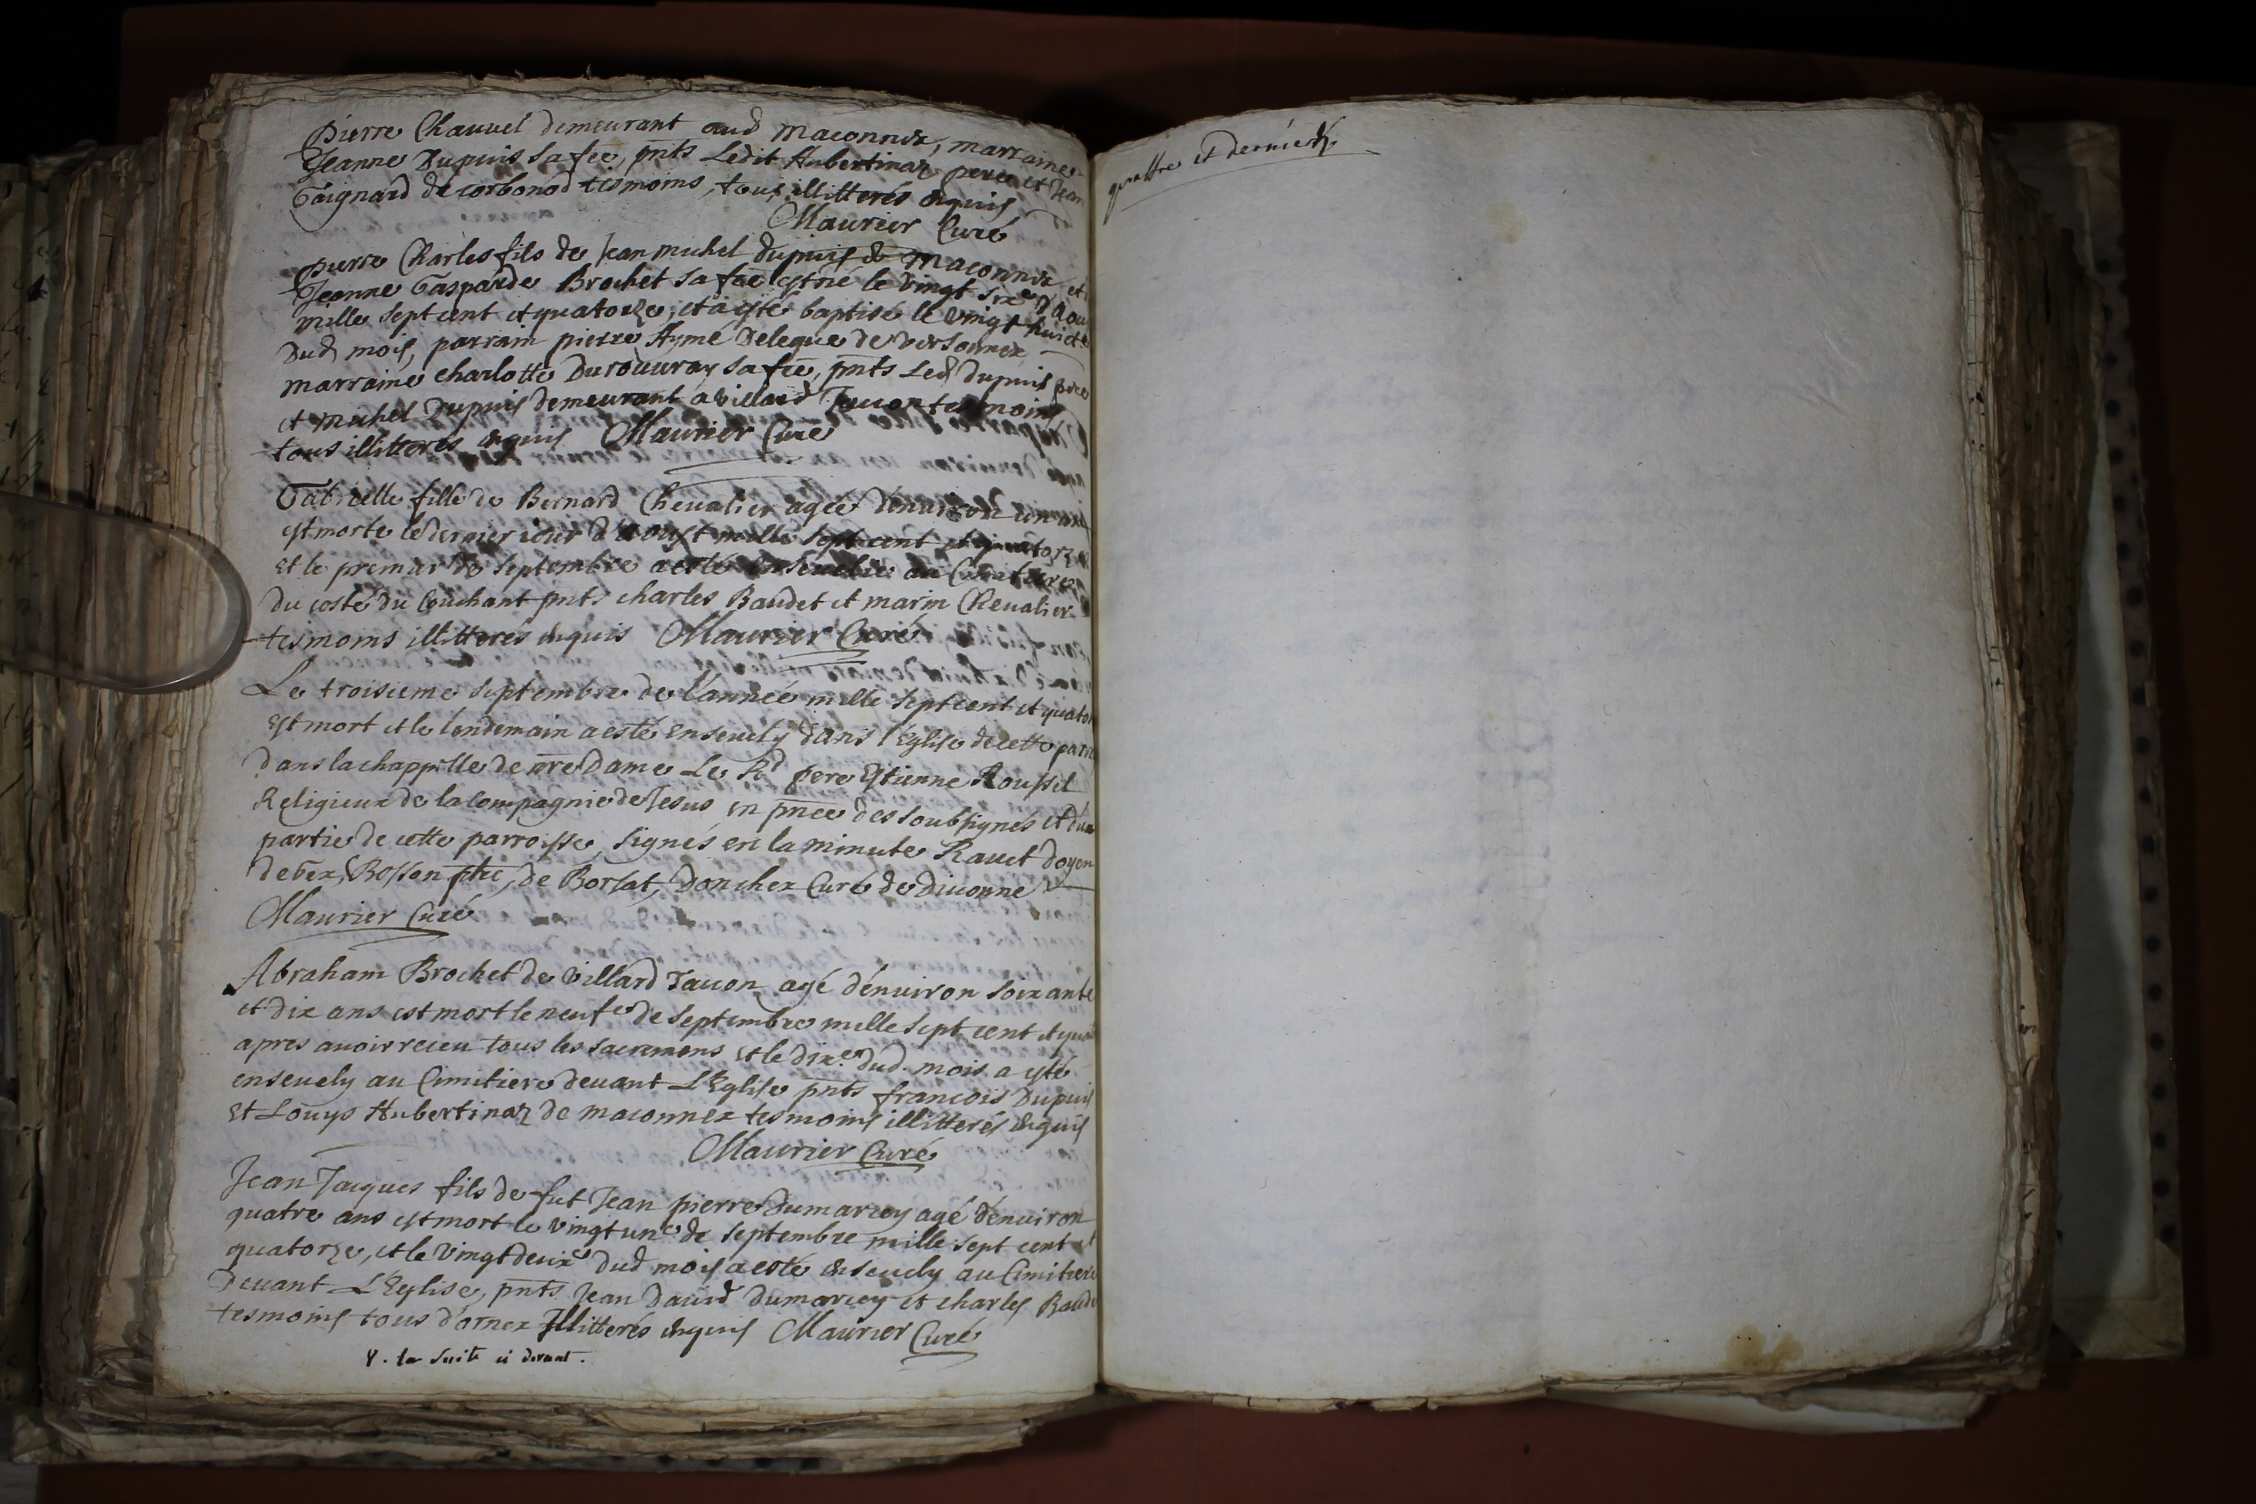 Pierre Chauvel demeurant aud Maconnex, marraine
Jeanne Dupuis sa fẽe, pnts Ledit Hubertinaz pere et Jean
Gaignard de corbonod tesmoins, tous illitterés enquis
Maurier Curé
Pierre Charles fils de Jean michel dupuis de Maconnex et
Jeanne Gasparde Brochet sa fẽe est né le vingt sixe d'Aou
mille sept cent et quatorze, et a esté baptisé le vingt huicte
dud mois, parrain pierre Aymé Deleque de versonnex
marraine charlotte Durouvray sa fẽe, pnts Led dupuis pere
et michel Dupuis demeurant a villard Tacon tesmoins
tous illitterés enquis Maurier Curé
Gabrielle fille de Bernard Chevalier agée d'environ un an
est morte le dernier jour d'aoust mille sept cent et quatorze
et le premier de septembre a esté ensevelie au Cimitiere
du costé du Couchant pnts charles Baudet et marin Chevalier
tesmoins illitterés enquis Maurier Curé
Le troisieme septembre de l'année mille sept cent et quator
est mort et le lendemain a esté ensevely dans l'Eglise de cette paroi
dans la chappelle de nre Dame Le Rd pere Estienne Roussel
Religieux de la Compagnie de Jesus en pnce des soubsignés et d'une
partie de cette parroisse, signés en la minute Ravet doyen
de Gex, Bosson ptre, de Borsat, Donchex Curé de Divonne
Maurier Curé
Abraham Brochet de villard Tacon agé d'environ soixante
et dix ans est mort le neufe de septembre mille sept cent et qua
apres avoir receu tous les sacremens et le dixe dud. mois a esté
ensevely au Cimitiere devant L'Eglise pnts francois Dupuis
et Louys Hubertinaz de maconnex tesmoins illitterés enquis
Maurier Curé
Jean Jacques fils de fut Jean pierre Dumarcey agé d'environ
quatre ans est mort le vingt une de septembre mille sept cent et
quatorze, et le vingt deuxe dud mois a esté ensevely au Cimitiere
devant L'Eglise, pnts Jean David Dumarcey et charles Baude
tesmoins tous d'ornex Illitterés enquis Maurier Curé
V. la suite ci devant.
quattre et dernier